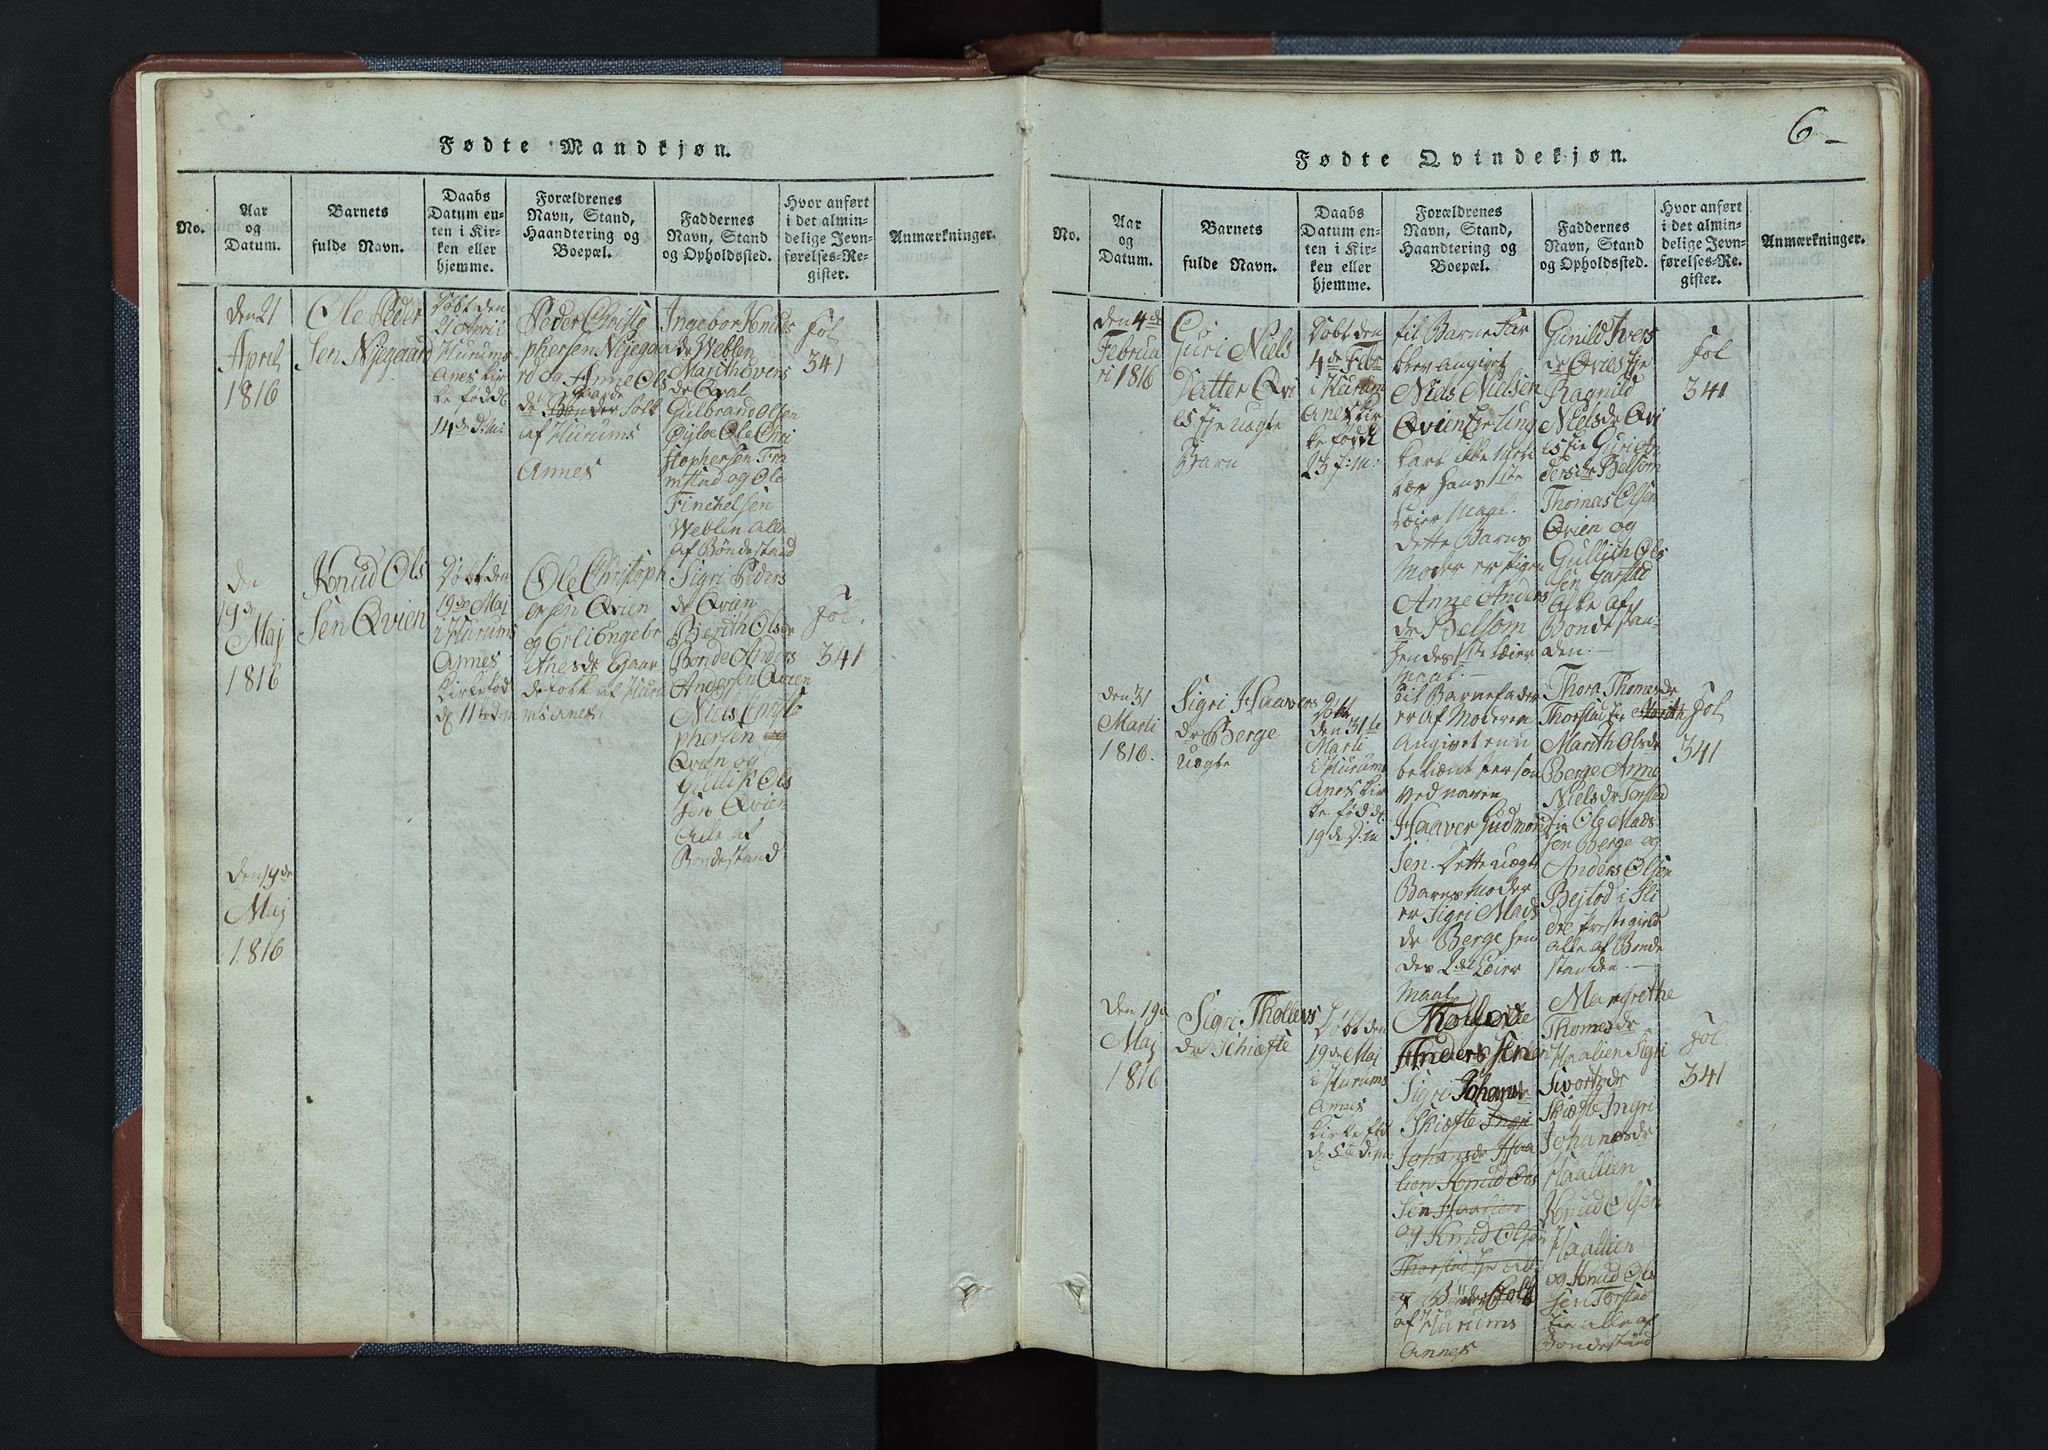 Fødte Mandkjøn.
No.
Aar
og
Datum.
Barnets
fulde Navn.
Daabs
Datum en-
ten i Kir-
ken eller
hjemme.
Forældrenes
Navn, Stand,
Haandtering og
Boepæl.
Faddernes
Navn, Stand
og Opholdssted.
Hvor anført
i det almin-
delige Jevn-
førelses-Re-
gister.
Anmærkninger.
den 21
April
1816
Ole Peder
Sen Nÿegaard
Døbt den
21 April
i Hurums
Anes Kir
ke født d:
14de d: m:
Peder Christo
phersen Nÿegaa
rd og Anne Ols
de Gaarde
Bønder Folk
af Hurums
Annes
Ingebor Knuds
de Weblen
Marith Overs
de Qval
Gulbrand Olsen
Ole Chri
stophersen
og Ole
Finchelsen
Weblen alle
af Bøndestand
Fol
341
den
19de
Maj
1816
Knud Ols
Sen Qvien
Døbt den
19de Maj
i Hurums
Annes
Kirke fød
d: 11te d: m
Ole Christoph
ersen Qvien
og Erli Engebr
Gaar
defolk af Huru
ms Anes
Sigri Peders
de Qvien
Berith Olsdr
Bonde Anders
Andersen Qvien
Niels Christo
phersen
Qvien og
Gullik Ols
sen Qvien
Alle af
Bondestand
Fol.
341
den 19de
Maj
1816
6-
Fødte Qvindekjøn.
No.
Aar
og
Datum.
Barnets
fulde Navn.
Daabs
Datum en-
ten i Kir-
ken eller
hjemme.
Forældrenes
Navn, Stand,
Haandtering og
Boepæl.
Faddernes
Navn, Stand
og Opholdssted.
Hvor anført
i det almin-
delige Jevn-
førelses-Re-
gister.
Anmærkninger.
den 4de
Februa
ri 1816
Guri Niels
Datter Qvi
es Eje uægte
Barn
Døbt den
4de Febr
i Hurum
Anes Kir
ke født
23 f: m:
til Barne Far
blev angivet
Niels Nielsen
Qvien Eje Ung
karl ikke
hans 1te
Leier Maal.
dette Barns
Moder er
Anne Anders
dr Belsom
hendes 1te Leier
maal
Gunild Ivers
dr Qvies Eje
Ragnild
Nielsdr Qvi
es Eie Guri An
dersdr Belsom
Thomas Olsen
Qvien og
Gullich Ols
sen Garstad
Alle af
Bondestan-
den.
Fol
341
den 31
Marti
1816.
Sigri Haavers
dr Berge
uægte
Døbt
den 31te
Marti
i Hurums
Anes Kir
ke fød d:
19de d: m
til Barnefader
er af Moderen
Angivet en u
bekiænt Person
ved naven
Haaver Gudmond
Sen. dette uægte
Barns Moder
er Sigri Mads
dr Berge hen
des 2de Leier
Maal
Thora Thomesdr
Thorstad Eje
Marith Olsdr
Berge Anne
Nielsdr Torstad
Eie Ole Mads
sen Berge og
Anders Olsen
Bejtod i Sli
dre Præstegield
alle af Bonde
standen.
Fol
341
den 19de
Maj
1816
Sigri Thollevs
dr Schiæfte
Døbt den
19de Maj
i Hurums
Annes
Kirke fød
d: 5te d: m:
Anderssen
Sigri Johansdr
Skiæfte Ingri
Johansdr Haa
lien Knud Ols
Sen Haalien
og Knud Olsen
Thorstad Eje alle
af BønderFolk
af Hurums
Annes
Margrethe
Thomesdr
Haalien Sigri
Sivortsdr
Skiæfte Ingri
Johanesdr
Haalien
Knud Olsen
Haalien
og Knud Ols
sen Torstad
Eie alle af
Bondestand
Fol
341